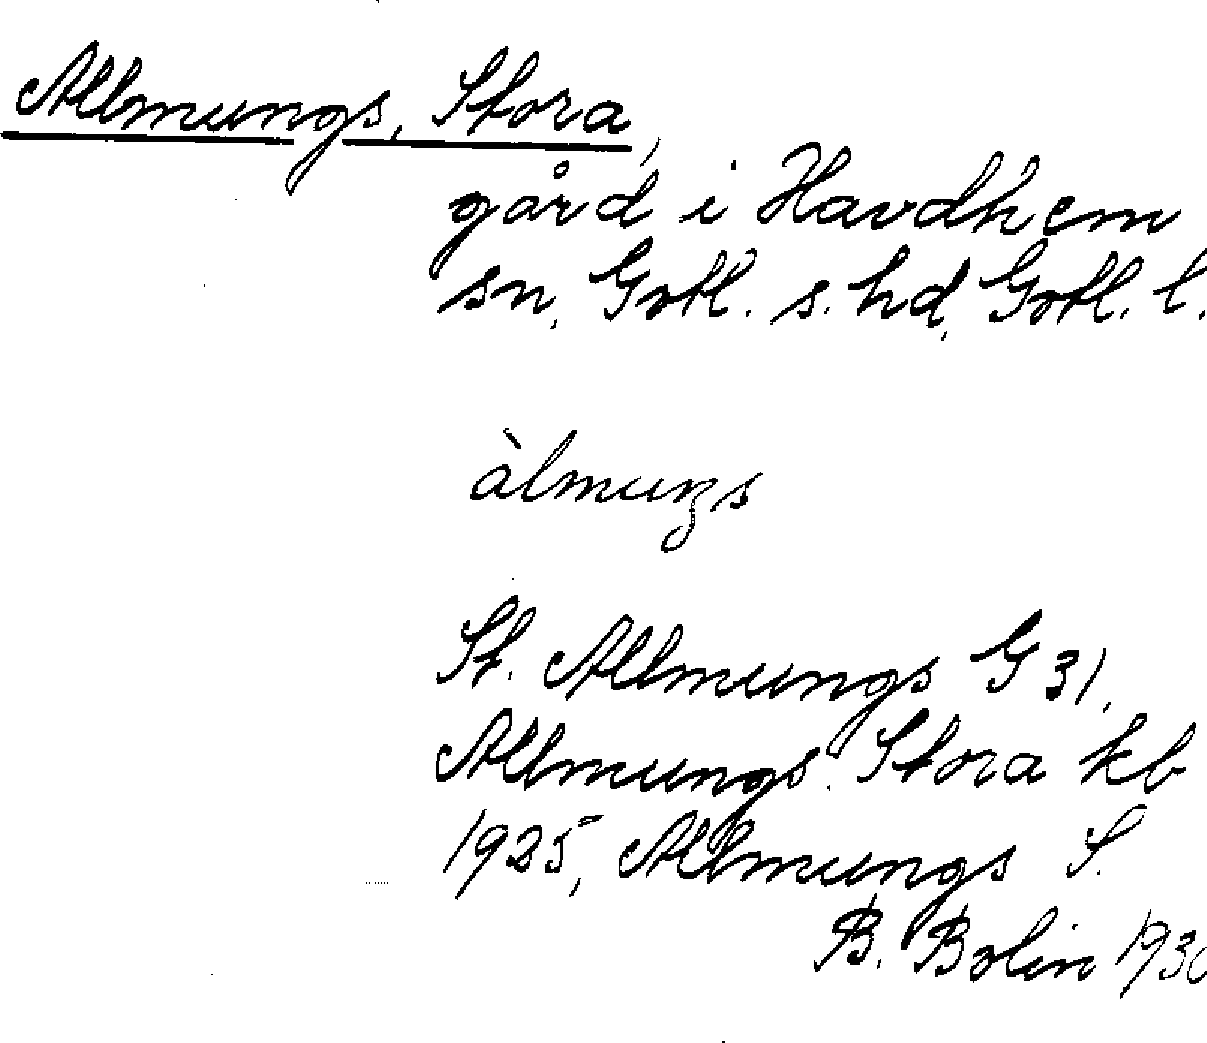 Allmungs, Stora,
gård i Havdhem
sn, Gotl. s. hd, Gotl. l.
àlmuŋs
St. Allmungs G 31,
Allmungs. Stora kb
1925, Allmungs S.
B. Bolin 1930